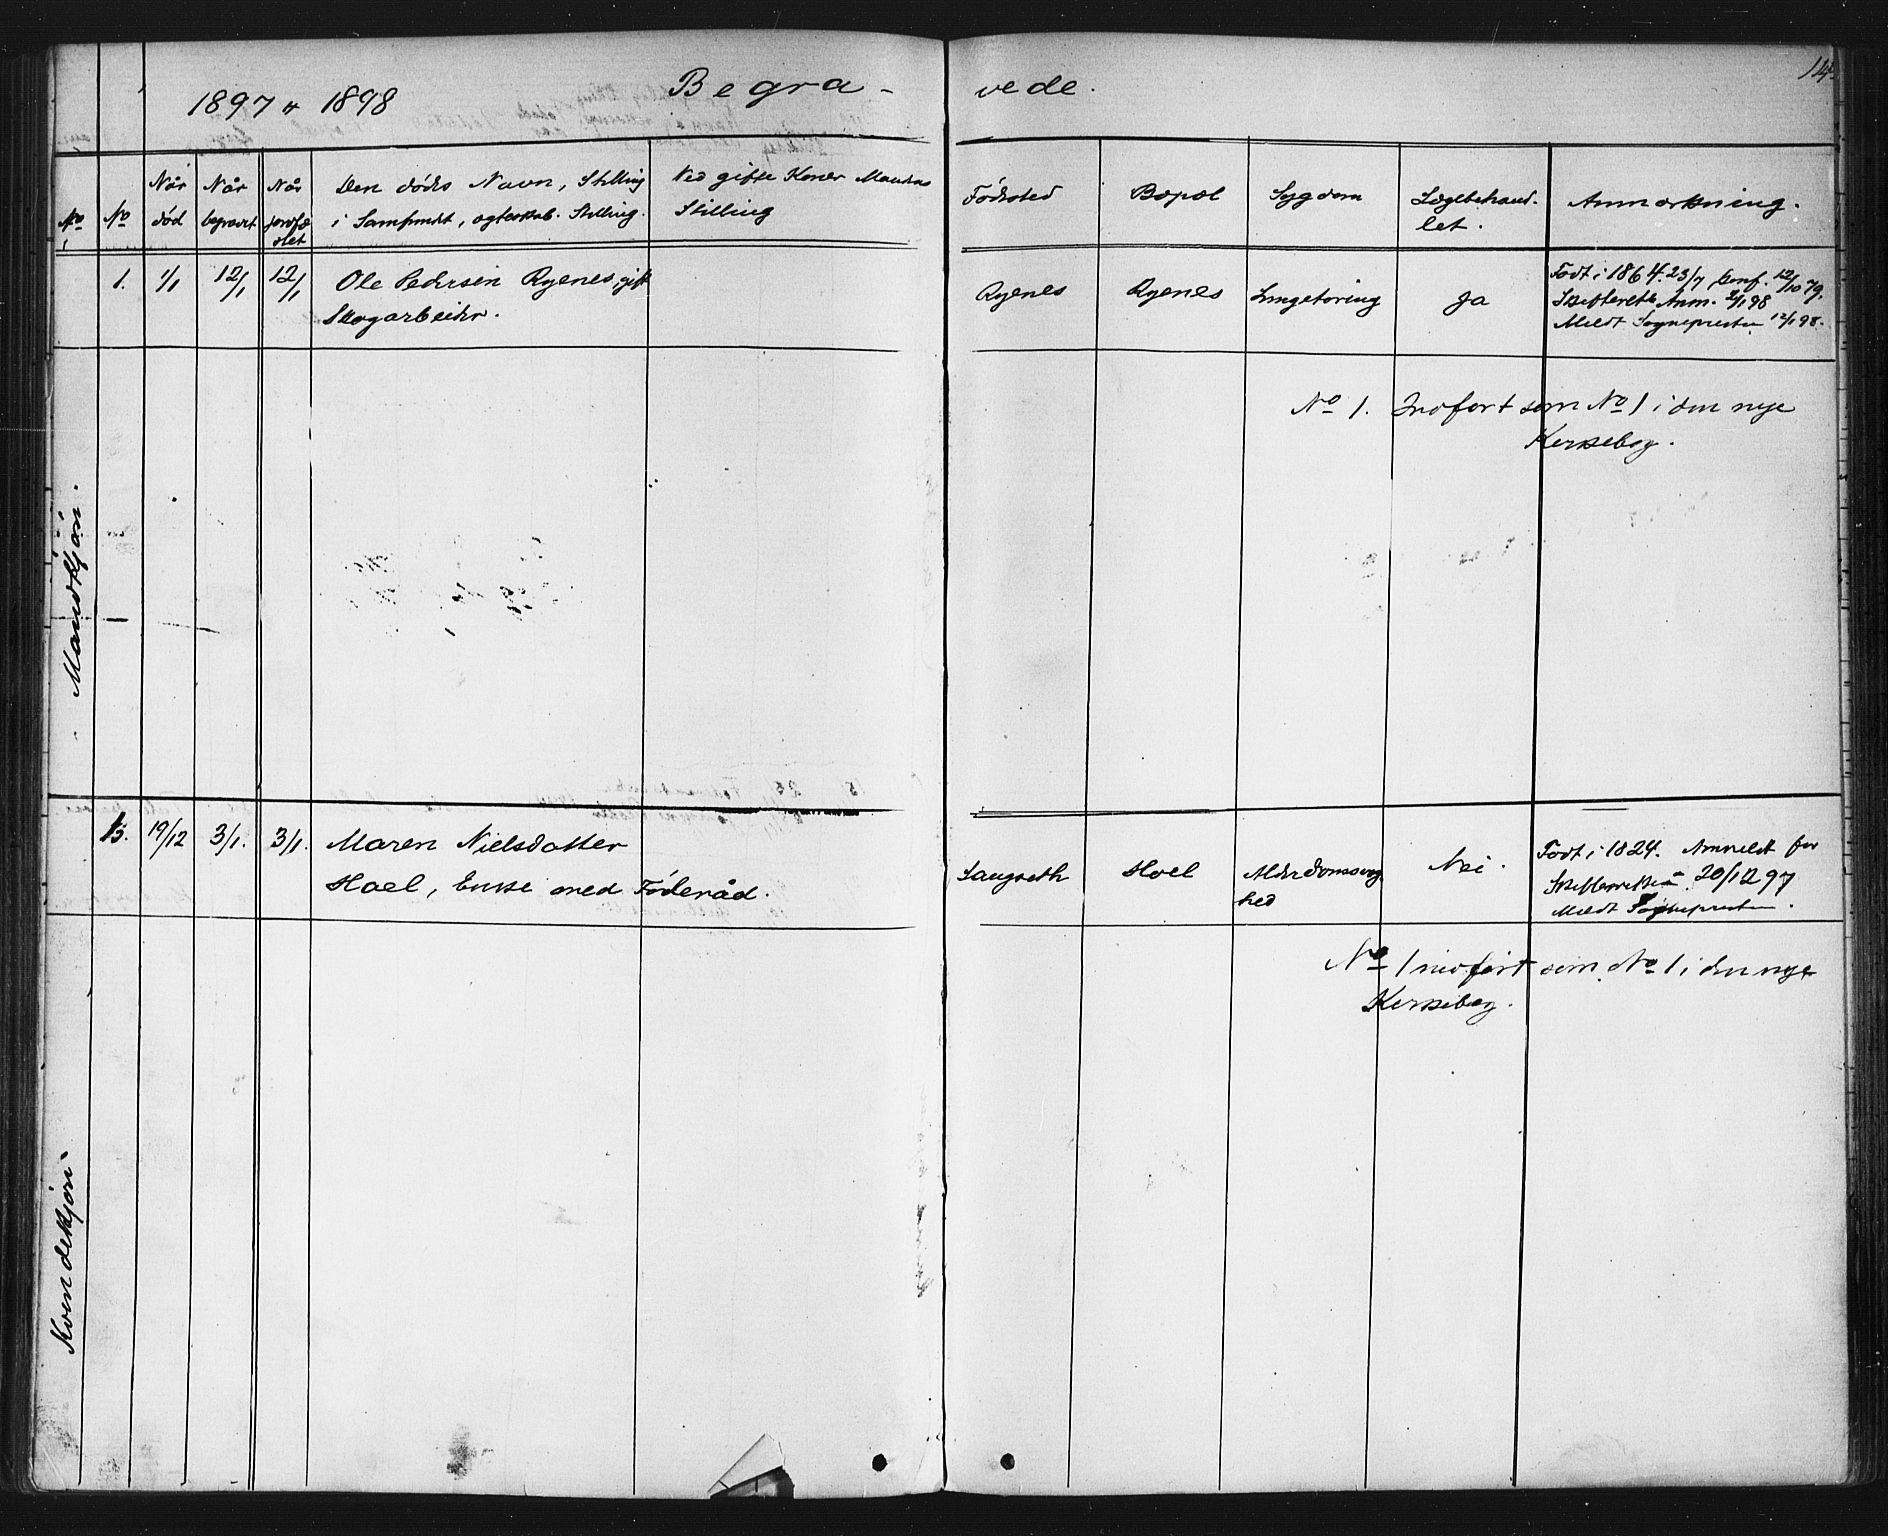 1897 & 1898
Begravede.
No
No
Når død
Når begravet
Når jordfæstet
Den dødes Navn, Stilling
i Samfundet, egteskab. Stilling.
Ved gifte Koner Mandens
Stilling
Fødested
Bopæl
Sygdom
Lægebehandlet.
Anmærkning.
Mandkjøn.
1. 1/1 12/1 12/1 Ole Pedersen Ryenes, gift
Skogarbeider.
Ryenes Ryenes Lungetæring Ja
Født i 1864. 23/7, Conf. 12/10 79.
Skifteret Anm. 2/1 98
Meldt Sognepresten 12/1 98.
No 1. Indført som No 1 i den nye
Kerkebog.
Kvindekjøn
19/12 3/1. 3/1. Maren Nielsdatter
Hoel, Enke med Føderåd.
Hoel Alderdomssvaghed
Nei.
Født i 1824. Anmeldt for
Skifteretten 20/12 97
Meldt Sognepresten.
No 1 indført som No 1 i den nye
Kerkebog.